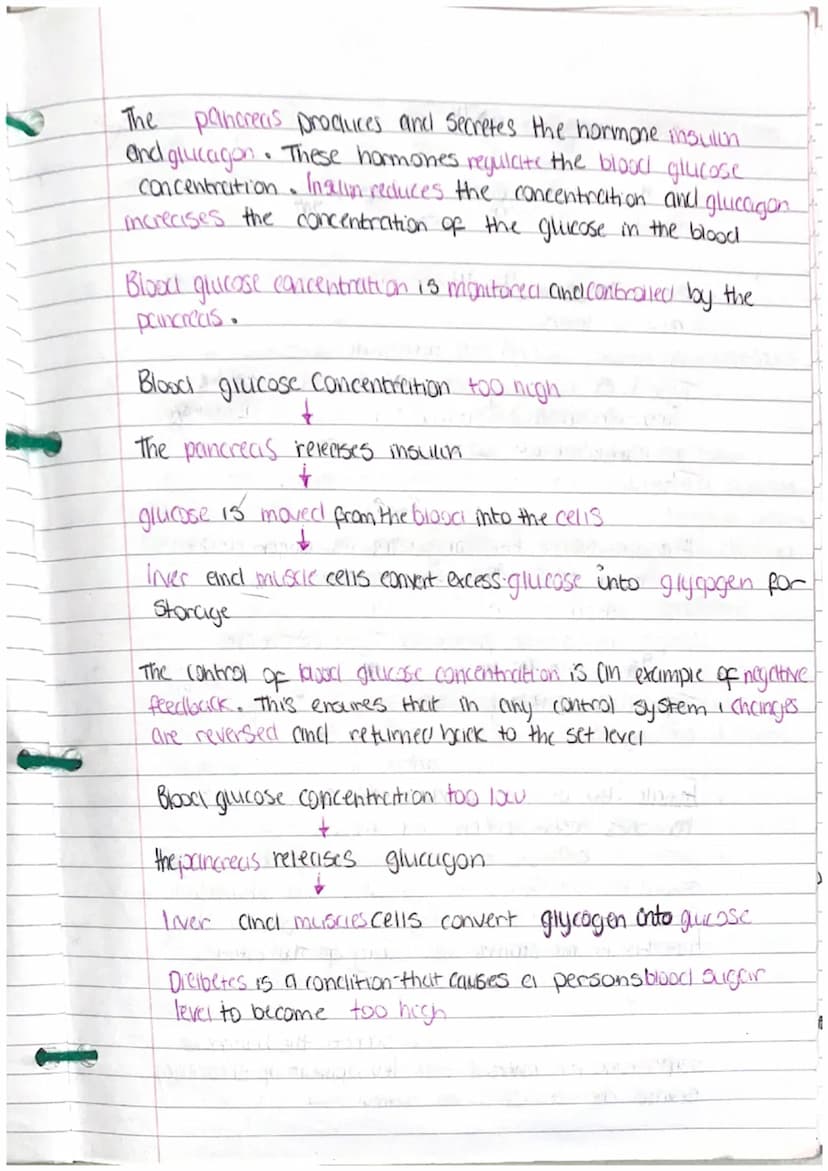 The pancreas produces and secretes the hormone insulin
and glucagon. These hormones regulate the blood glucose
concentration. Insulin reduces the concentration and glucagon
increases the concentration of the glucose in the blood
Blood glucose concentration is monitored and controlled by the
pancreas.
Blood glucose concentration too high
↓
The pancreas releases insulin
↓
glucose is moved from the blood into the cells
↓
liver and muscle cells convert excess glucose into glycogen for
storage
The control of blood glucose concentration is an example of negative
feedback. This ensures that in any control system, changes
are reversed and returned back to the set level
Blood glucose concentration too low
↓
the pancreas releases glucagon
↓
liver and muscles cells convert glycogen into gucose
Diabetes is a condition that causes a persons blood sugar
level to become too high